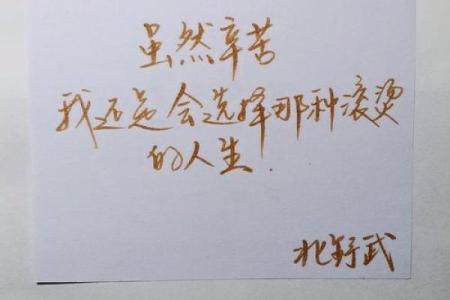 虽然辛苦
我还是会选择那种滚烫
的人生.
北野武